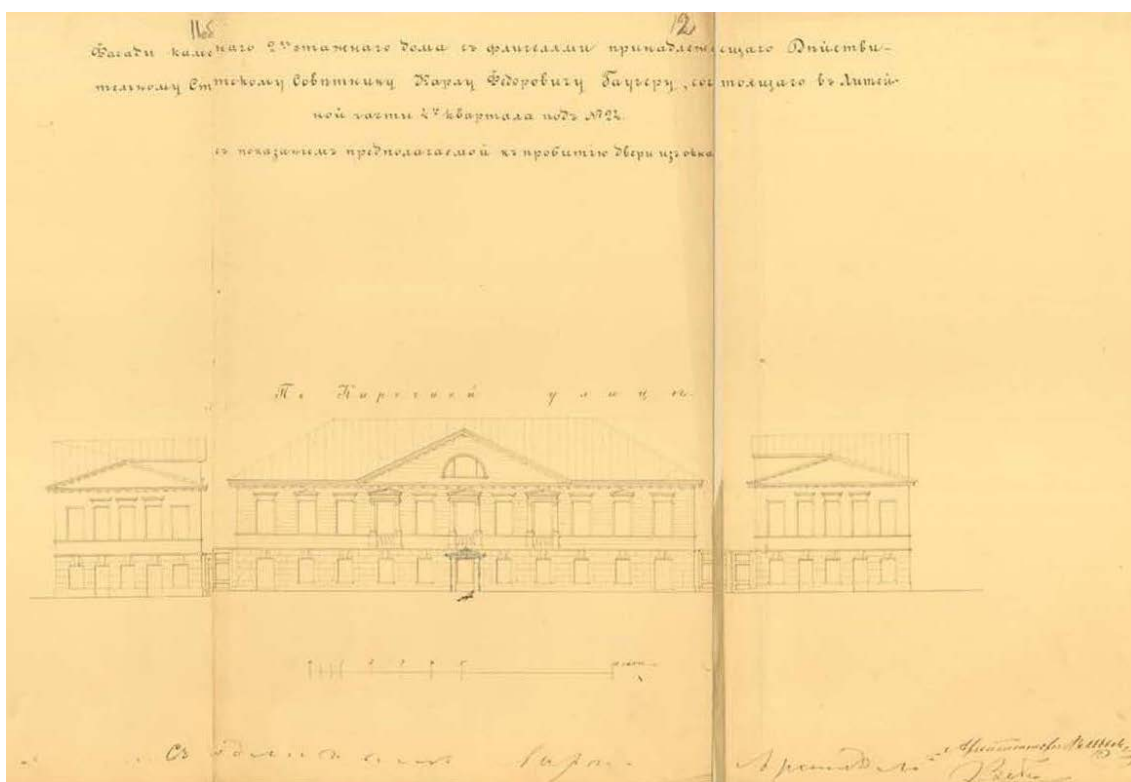 11об 12
Фасады каменнаго 2хъ этажнаго дома съ флигелями принадлежащаго Дѣйстви-
тельному Статскому Совѣтнику Карлу Федоровичу Гаугеру, состоящаго въ Литей-
ной части 2го квартала подъ №22.
съ показаніемъ предполагаемой къ пробитію двери изъ окна
По Кирочной улицѣ.
Архитекторъ